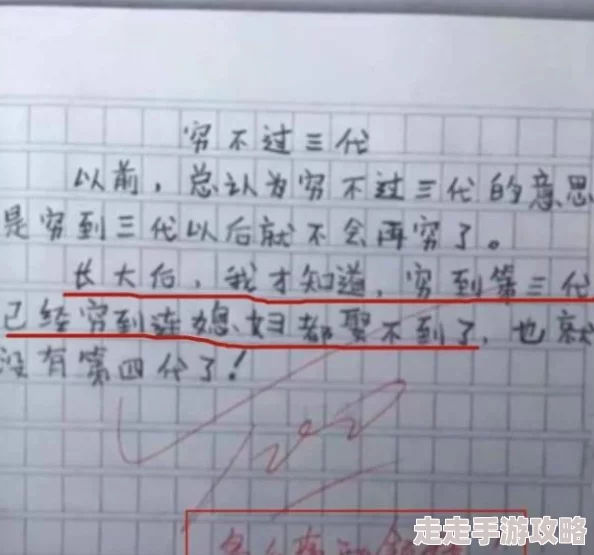 穷不过三代
以前，总认为穷不过三代的意思
是穷到三代以后就不会再穷了。
长大后，我才知道，穷到第三代
已经穷到连媳妇都娶不到了，也就
没有第四代了！
100
走走手游攻略